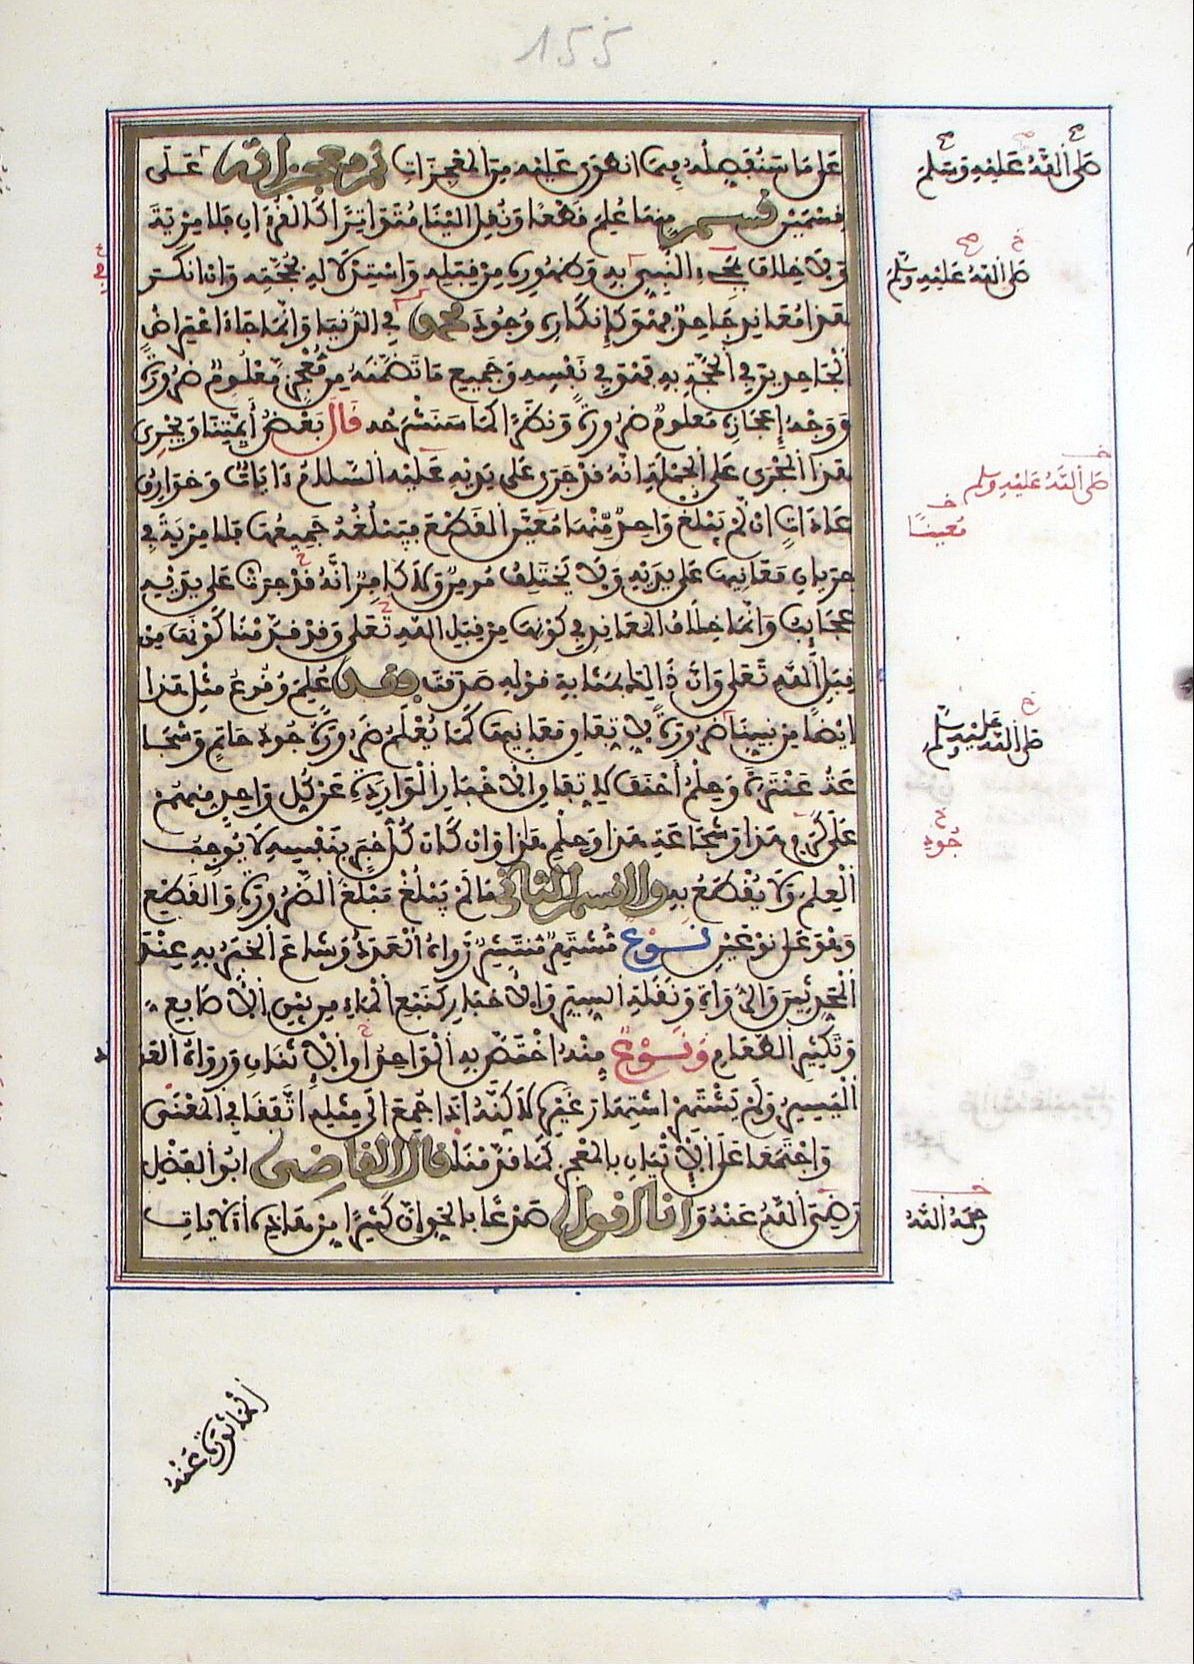 155
على ما سنفصله فيما انطوى عليه من المعجزات ثم معجزاته على
قسمين قسم منها علم قطعا ونقل الينا متواترا كالقرءان فلا مرية
ولا خلاف بمجىء النبي به وظهوره من قبله واستدلاله بحجته وان انكر
هذا معاند جاحد فهو كإنكاره وجود محمد في الدنيا وانما جاء اعتراض
الجاحدين في الحجة به فهو في نفسه وجميع ما تضمنه من معجز معلوم ضرورة
ووجه إعجازه معلوم ضرورة ونظرا كما سنشرحه قال بعض أيمتنا ويجرى
هذا المجرى على الجملة انه قد جرى على يديه عليه السلام ءايات وخوارق
عادات ان لم يبلغ واحد منها معين القطع فيبلغه جميعها فلا مرية في
جريان معانيها على يديه ولا يختلف مومن ولا كافر انه قد جرت على يديه
عجايب وانما خلاف المعاند في كونها من قبل الله تعلى وقد قدمنا كونها من
قبل الله تعلى وان ذالك بمثابة قوله صدقت فقد علم وقوع مثل هذا
ايضا من نبينا ضرورة لاتفاق معانيها كما يعلم ضرورة جود حاتم وشجا
عة عنترة وحلم أحنف لاتفاق الاخبار الواردة عن كل واحد منهم
على كرم هذا وشجاعة هذا وحلم هذا وان كان كل خبر بنفسه لا يوجب
العلم ولا يقطع به والقسم الثانى ما لم يبلغ مبلغ الضرورة والقطع
وهو على نوعين نوع مشتهر منتشر رواه العدد وشاع الخبر به عند
المحدثين والرواة ونقلة السير والاخبار كنبع الماء من بين الأصابع
وتكثير الطعام ونوع منه اختص به الواحد أو الاثنان ورواه العدد
اليسير ولم يشتهر اشتهار غيره لاكنه اذا جمع الى مثله اتفقا في المعنى
واجتمعا على الاتيان بالمعجز كما قدمناه قال القاضى ابو الفضل
رضي الله عنه وانا اقول صدعا بالحق ان كثيرا من هذه الآيات
صلى الله عليه وسلم
صلى الله عليه وسلم
صلى الله عليه وسلم
معينا
صلى الله عليه وسلم
جود
رحمه الله
الماثورة عنه